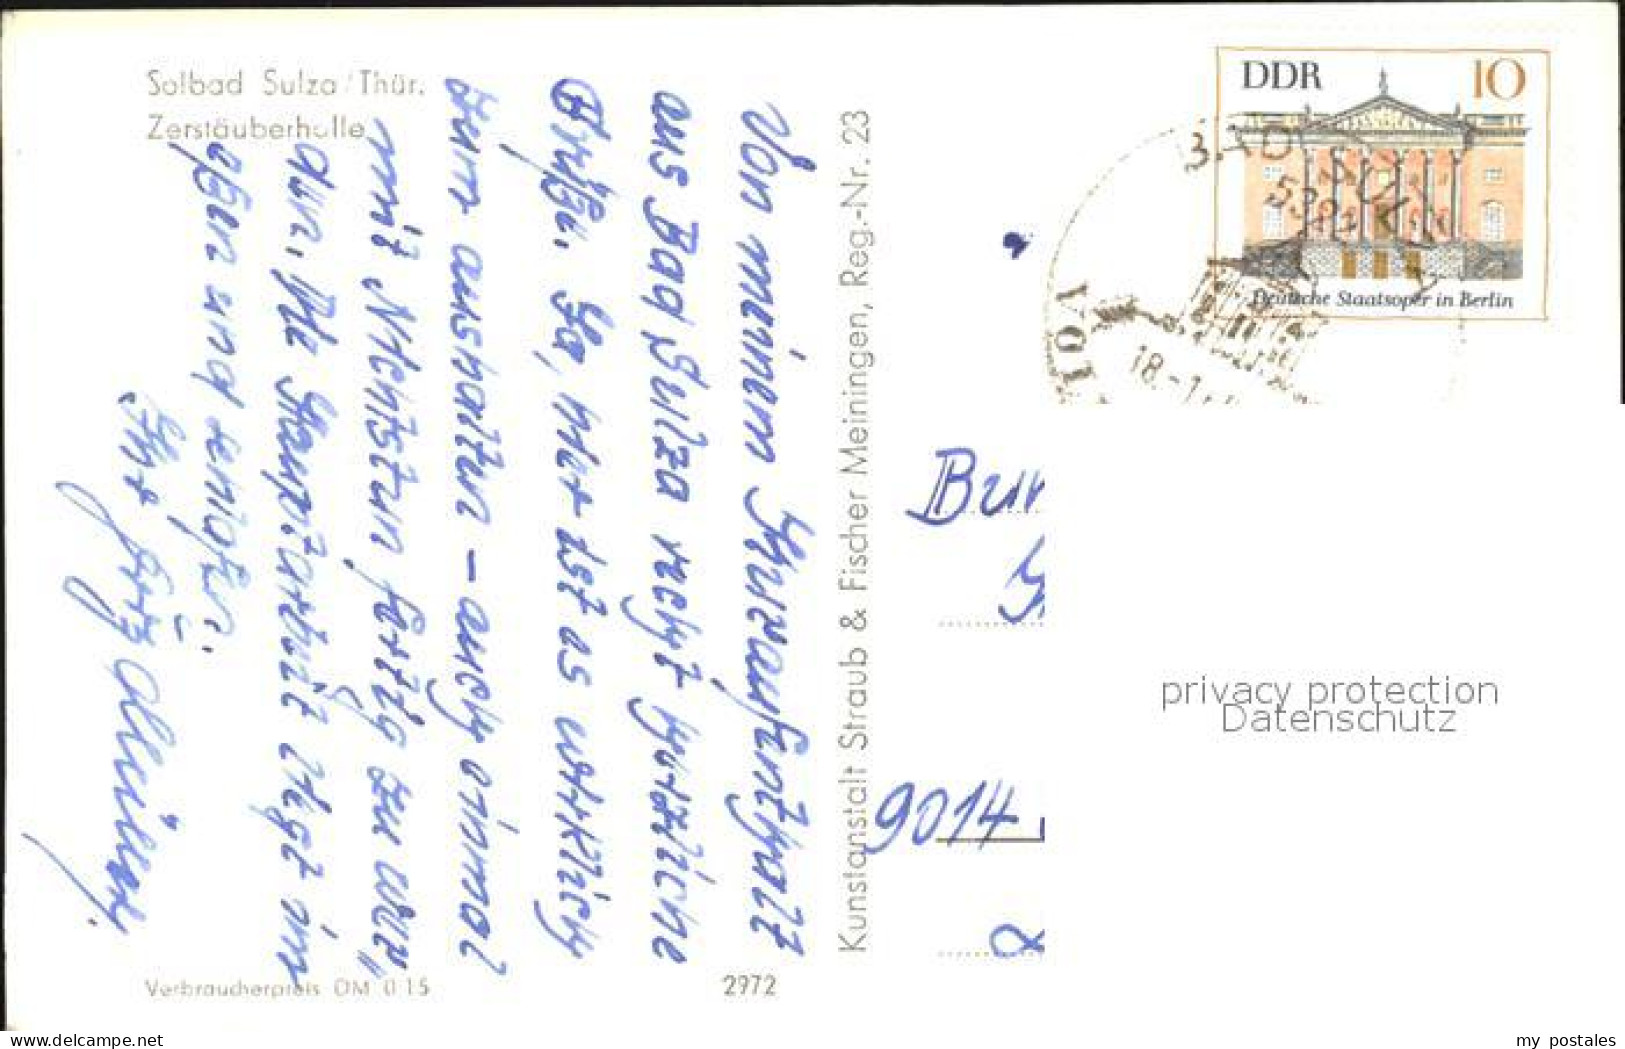 Solbad Sulza/Thür.
Zerstäuberhalle
Von meinem Kuraufenthalt
aus Bad Sulza recht herzliche
Grüße. Ja, hier ist es wirklich
zum aushalten - auch einmal
mit Nichtstun fertig zu wer-
den. Die Hauptarbeit liegt im
eßen und
Ihr
Kunstanstalt Straub & Fischer Meiningen, Reg.-Nr. 23
Verbraucherpreis DM 0.15
2972
DDR 10
Deutsche Staatsoper in Berlin
BAD SULZA
18.-7.
9014
privacy protection
Datenschutz
my postales
www.delcampe.net